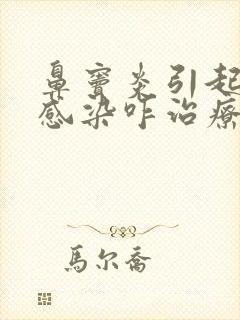 鼻窦炎引起
感染咋治療
馬尔喬